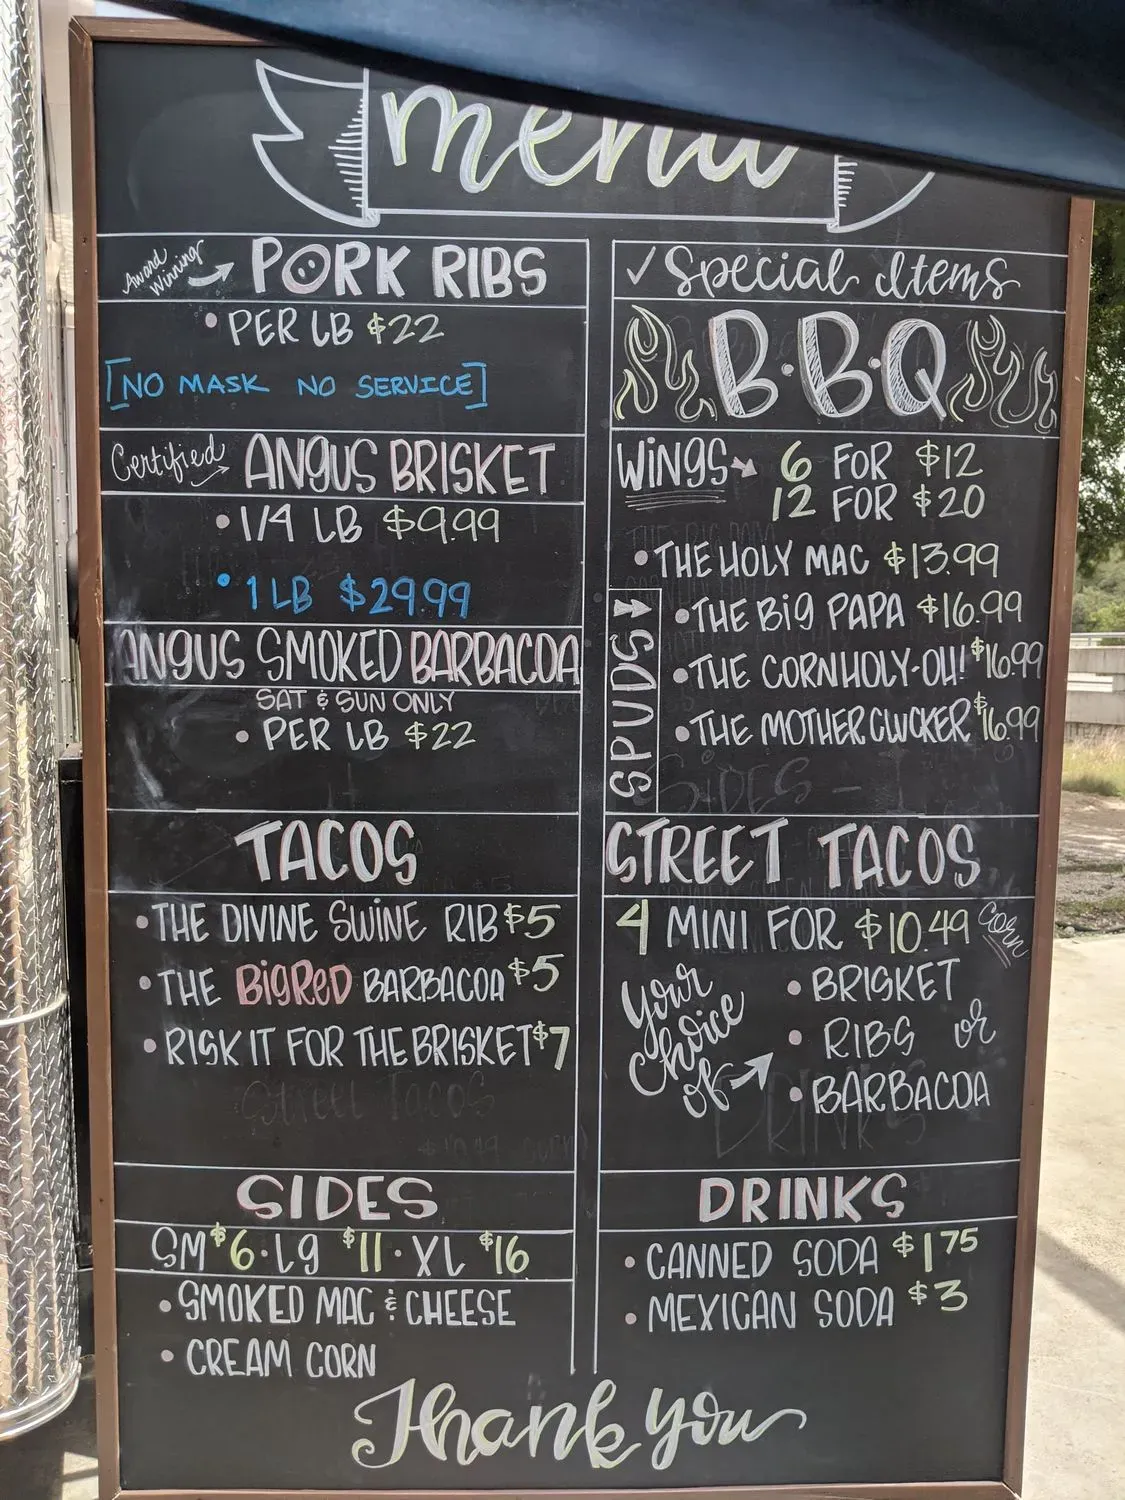 menu
Award Winning PORK RIBS
• PER LB $22
[NO MASK NO SERVICE]
Certified ANGUS BRISKET
• 1/4 LB $9.99
• 1 LB $29.99
ANGUS SMOKED BARBACOA
SAT & SUN ONLY
• PER LB $22
TACOS
• THE DIVINE SWINE RIB $5
• THE BIGRED BARBACOA $5
• RISK IT FOR THE BRISKET $7
Street Tacos
SIDES
SM $6 · LG $11 · XL $16
• SMOKED MAC & CHEESE
• CREAM CORN
✓ Special Items
B·B·Q
WINGS 6 FOR $12
12 FOR $20
• THE HOLY MAC $13.99
SPUDS
• THE BIG PAPA $16.99
• THE CORNHOLY-OH! $16.99
• THE MOTHERCLUCKER $16.99
SIDES
STREET TACOS
4 MINI FOR $10.49 corn
Your choice of
• BRISKET
• RIBS or
• BARBACOA
DRINKS
DRINKS
• CANNED SODA $1.75
• MEXICAN SODA $3
Thank you